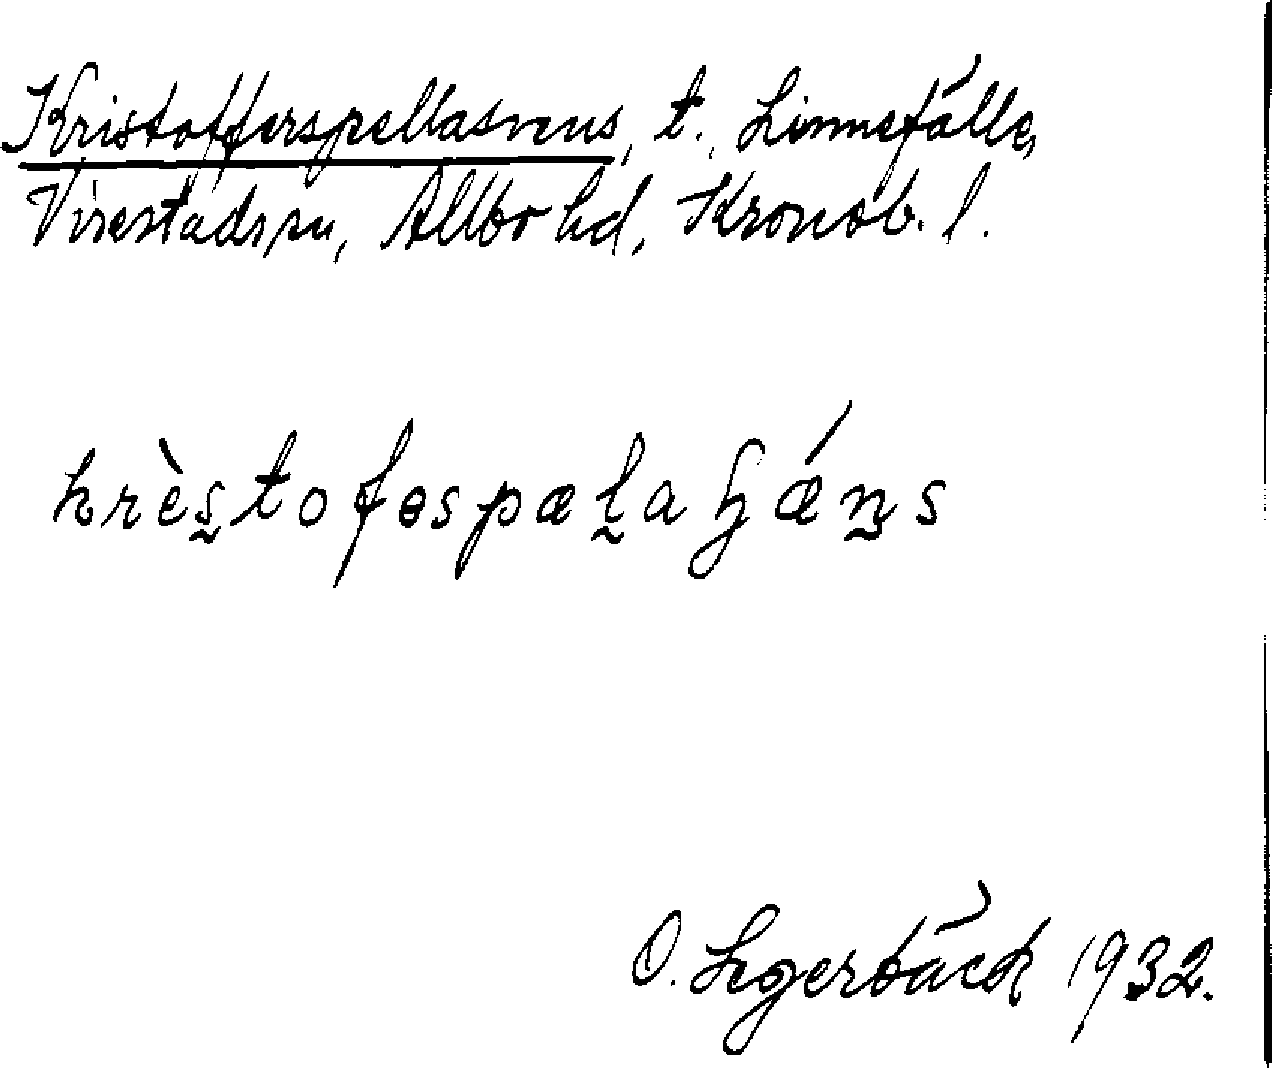 Kristofferspellasvens, t. Linnefälle,
Virestads sn, Allbo hd, Kronob. l.
krèstofɵspælaꜧǽns
O. Legerbäck 1932.